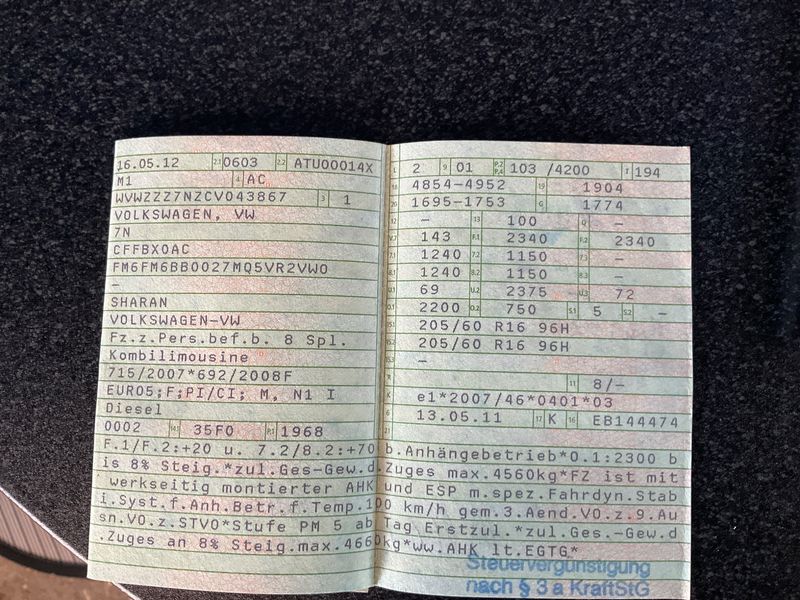 16.05.12 2.1 0603 2.2 ATU00014X
M1 4 AC
WVWZZZ7NZCV043867 3 1
VOLKSWAGEN, VW
7N
CFFBX0AC
FM6FM6BB0027MQ5VR2VW0
–
SHARAN
VOLKSWAGEN-VW
Fz.z.Pers.bef.b. 8 Spl.
Kombilimousine
715/2007*692/2008F
EURO5;F;PI/CI; M, N1 I
Diesel
0002 14.1 35F0 P.1 1968
L 2 9 01 P.2 P.4 103 /4200 T 194
18 4854-4952 19 1904
20 1695-1753 G 1774
12 – 13 100 Q –
V.7 143 F.1 2340 F.2 2340
7.1 1240 7.2 1150 7.3 –
8.1 1240 8.2 1150 8.3 –
U.1 69 U.2 2375 U.3 72
O.1 2200 O.2 750 S.1 5 S.2 –
15.1 205/60 R16 96H
15.2 205/60 R16 96H
15.3 –
R 11 8/-
K e1*2007/46*0401*03
6 13.05.11 17 K 16 EB144474
21
F.1/F.2:+20 u. 7.2/8.2:+70 b.Anhängebetrieb*O.1:2300 b
is 8% Steig.*zul.Ges-Gew.d.Zuges max.4560kg*FZ ist mit
werkseitig montierter AHK und ESP m.spez.Fahrdyn.Stab
i.Syst.f.Anh.Betr.f.Temp.100 km/h gem.3.Aend.VO.z.9.Au
sn.VO.z.STVO*Stufe PM 5 ab Tag Erstzul.*zul.Ges.-Gew.d
.Zuges an 8% Steig.max.4660kg*ww.AHK lt.EGTG*
Steuervergünstigung
nach § 3 a KraftStG